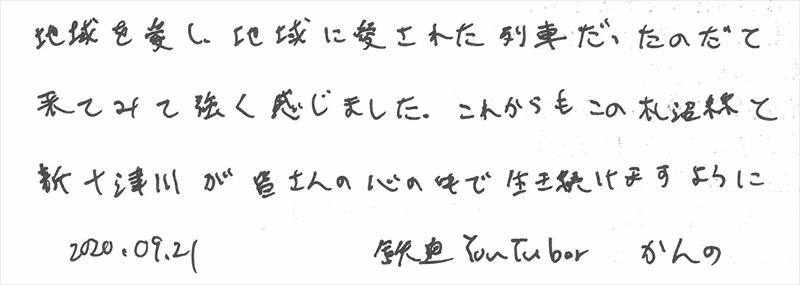 地域を愛し、地域に愛された列車だったのだと
来てみて強く感じました。これからもこの札沼線と
新十津川が皆さんの心の中で生き続けますように
2020.09.21 鉄道YouTuber かんの